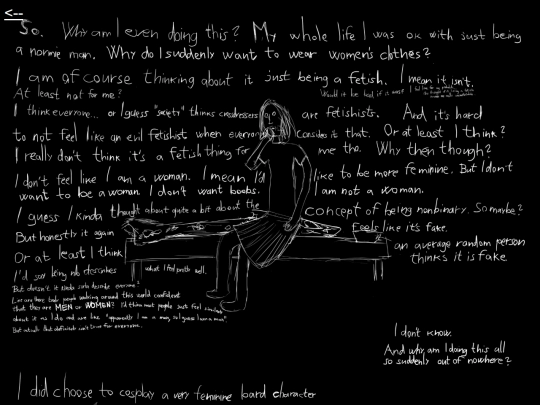 <--
So. Why am I even doing this? My whole life I was ok with just being
a normie man. Why do I suddenly want to wear women's clothes?
I am of course thinking about it just being a fetish. I mean it isn't.
At least not for me? Would it be bad if it was?
I think everyone... or I guess "society" thinks crossdressers are fetishists. And it's hard
to not feel like an evil fetishist when everyone consider it that. Or at least I think?
I really don't think it's a fetish thing for me tho. Why then though?
I don't feel like I am a woman. I mean I'd like to be more feminine. But I don't
want to be a woman. I don't want boobs. I am not a woman.
I guess I kinda thought about quite a bit about the concept of being nonbinary. So maybe?
But honestly it again feels like it's fake.
Or at least I think an average random person
thinks it is fake
I'd say being nb describes what I feel pretty well.
But doesn't it kinda sorta describe everyone?
Are there people walking around this world confident
that they are MEN or WOMEN? I'd think most people just feel
about it as I do and are like "apparently I am a man, so I guess I am a man".
But actually that definitely isn't true for everyone.
I don't know.
And why am I doing this all
so suddenly out of nowhere?
I did choose to cosplay a very feminine bard character